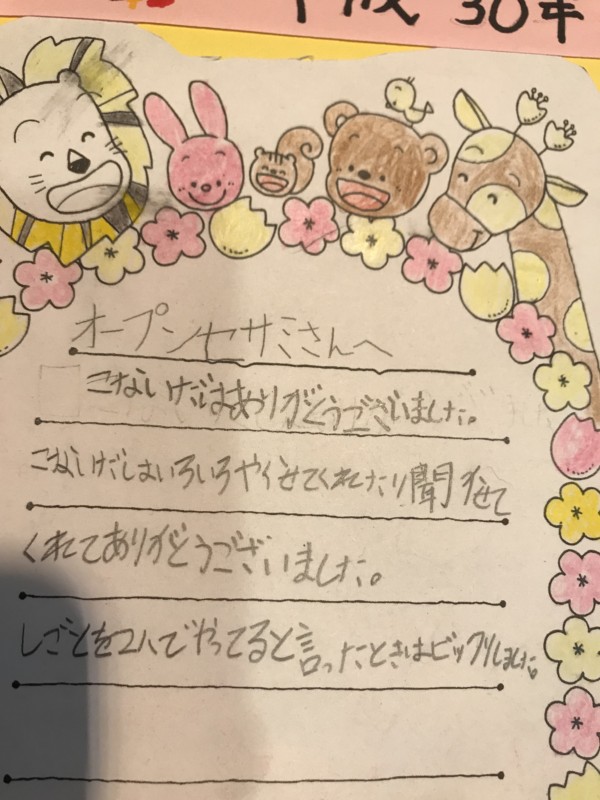 平成 30年
オープンセサミさんへ
こないだはありがとうございました。
こないだはいろいろやらせてくれたり聞かせて
くれてありがとうございました。
しごとを2人でやってると言ったときはビックリしました。